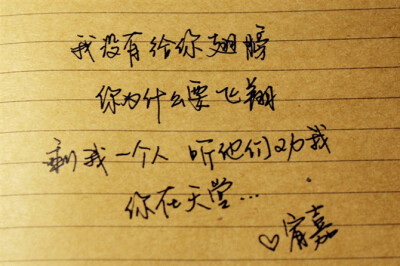 我没有给你翅膀
你为什么要飞翔
剩我一个人 听他们劝我
你在天堂...
♡宥嘉